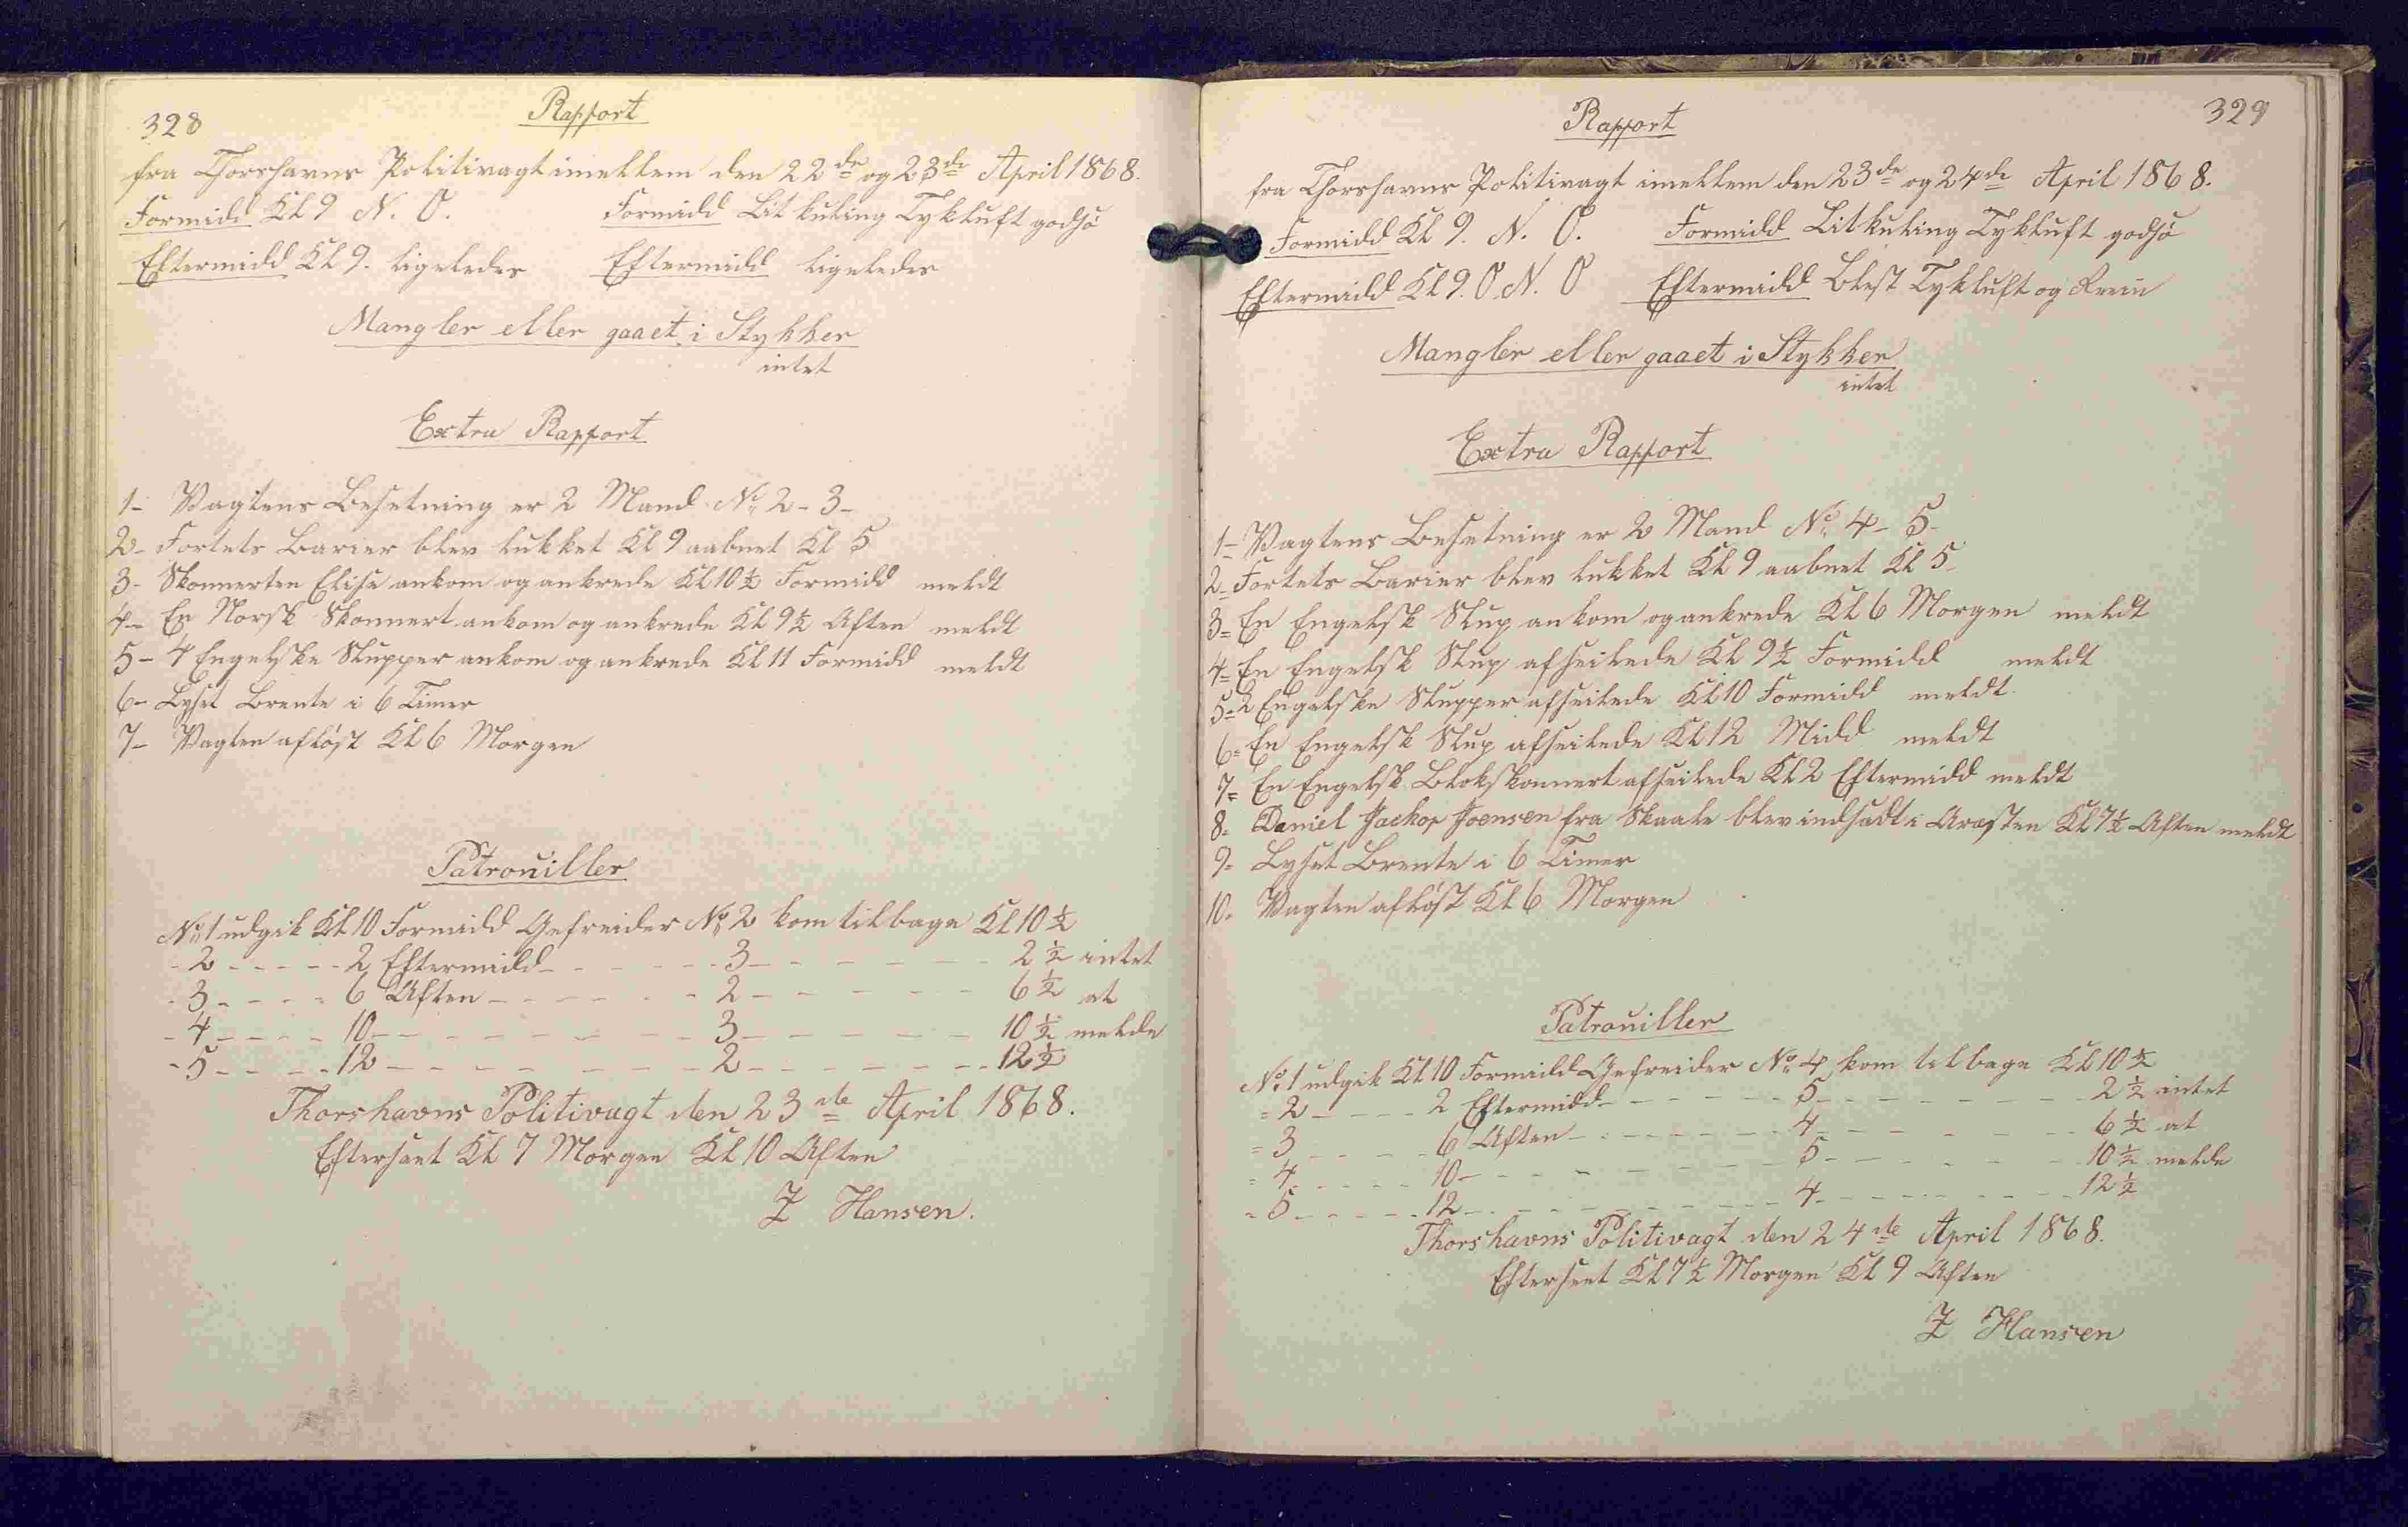 328
Rapport
fra Thorshavns Politivagt imellem den 22de og 23de April 1868.
Formidd Kl 9 N. O. Formidd Lit kuling Tykluft godsö
Eftermidd Kl 9. ligeledes Eftermidd ligeledes
Mangler eller gaaet i Stykker
intet
Extra Rapport
1- Vagtens Besetning er 2 Mand No 2 - 3 -
2- Fortets Barier blev lukket Kl 9 aabnet Kl 5
3- Skonnerten Elise ankom og ankrede Kl 10 ½ Formidd meldt
4- En Norsk Skonnert ankom og ankrede Kl 9 ½ Aften meldt
5- 4 Engelske Slupper ankom og ankrede Kl 11 Formidd meldt
6- Lyset Brente i 6 Timer
7- Vagten aflöst Kl 6 Morgen
Patrouiller
No 1 udgik Kl 10 Formidd Gefreider No 2 kom tilbage Kl 10 ½
- 2 - - - - - 2 Eftermidd - - - - - - 3 - - - - - - - 2 ½ intet
- 3 - - - - - 6 Aften - - - - - - 2 - - - - - - 6 ½ at
- 4 - - - - - 10 - - - - - - - - 3 - - - - - - 10 ½ melde
- 5 - - - - - 12 - - - - - - - - 2 - - - - - - - 12 ½
Thorshavns Politivagt den 23de April 1868.
Efterseet Kl 7 Morgen Kl 10 Aften
Z Hansen.
329
Rapport
fra Thorshavns Politivagt imellem den 23de og 24de April 1868.
Formidd Kl 9. N. O. Formidd Lit kuling Tykluft godsö
Eftermidd Kl 9. O. N. O Eftermidd Blest Tykluft og Rein
Mangler eller gaaet i Stykker
intet
Extra Rapport
1- Vagtens Besetning er 2 Mand No 4 - 5 -
2- Fortets Barier blev lukket Kl 9 aabnet Kl 5 -
3= En Engelsk Slup ankom og ankrede Kl 6 Morgen meldt
4= En Engelsk Slup afseilede Kl 9 ½ Formidd meldt
5= 2 Engelske Slupper afseilede Kl 10 Formidd meldt
6= En Engelsk Slup afseilede Kl 12 Midd meldt
7= En Engelsk Blokskonnert afseilede Kl 2 Eftermidd meldt
8= Daniel Jackop Joensen fra Skaale blev indsadt i Aresten Kl 7 ½ Aften meldt
9= Lyset Brente i 6 Timer
10= Vagten aflöst Kl 6 Morgen
Patrouiller
No 1 udgik Kl 10 Formidd Gefreider No 4 kom tilbage Kl 10 ½
= 2 - - - - - 2 Eftermidd - - - - - - 5 - - - - - - - - 2 ½ intet
= 3 - - - - - 6 Aften - - - - - - - 4 - - - - - - - 6 ½ at
= 4 - - - - - 10 - - - - - - - - 5 - - - - - - - 10 ½ melde
= 5 - - - - - 12 - - - - - - - - 4 - - - - - - - 12 ½
Thorshavns Politivagt den 24de April 1868.
Efterseet Kl 7 ½ Morgen Kl 9 Aften
Z Hansen